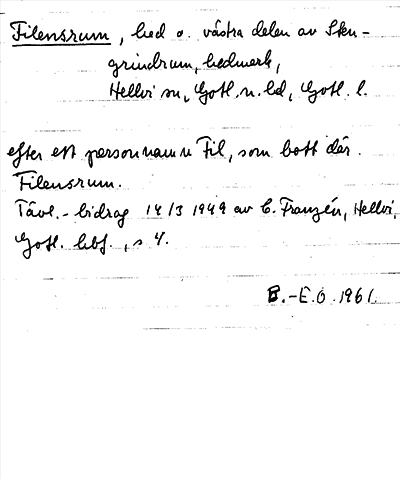 Filensrum, hed o. västra delen av Sten-
grindrum, hedmark,
Hellvi sn, Gotl. n. hd, Gotl. l.
efter ett personnamn Fil, som bott där.
Filensrum.
Tävl.-bidrag 14/3 1949 av C. Franzén, Hellvi,
Gotl. hbf., s 4.
B.-E.O. 1961.